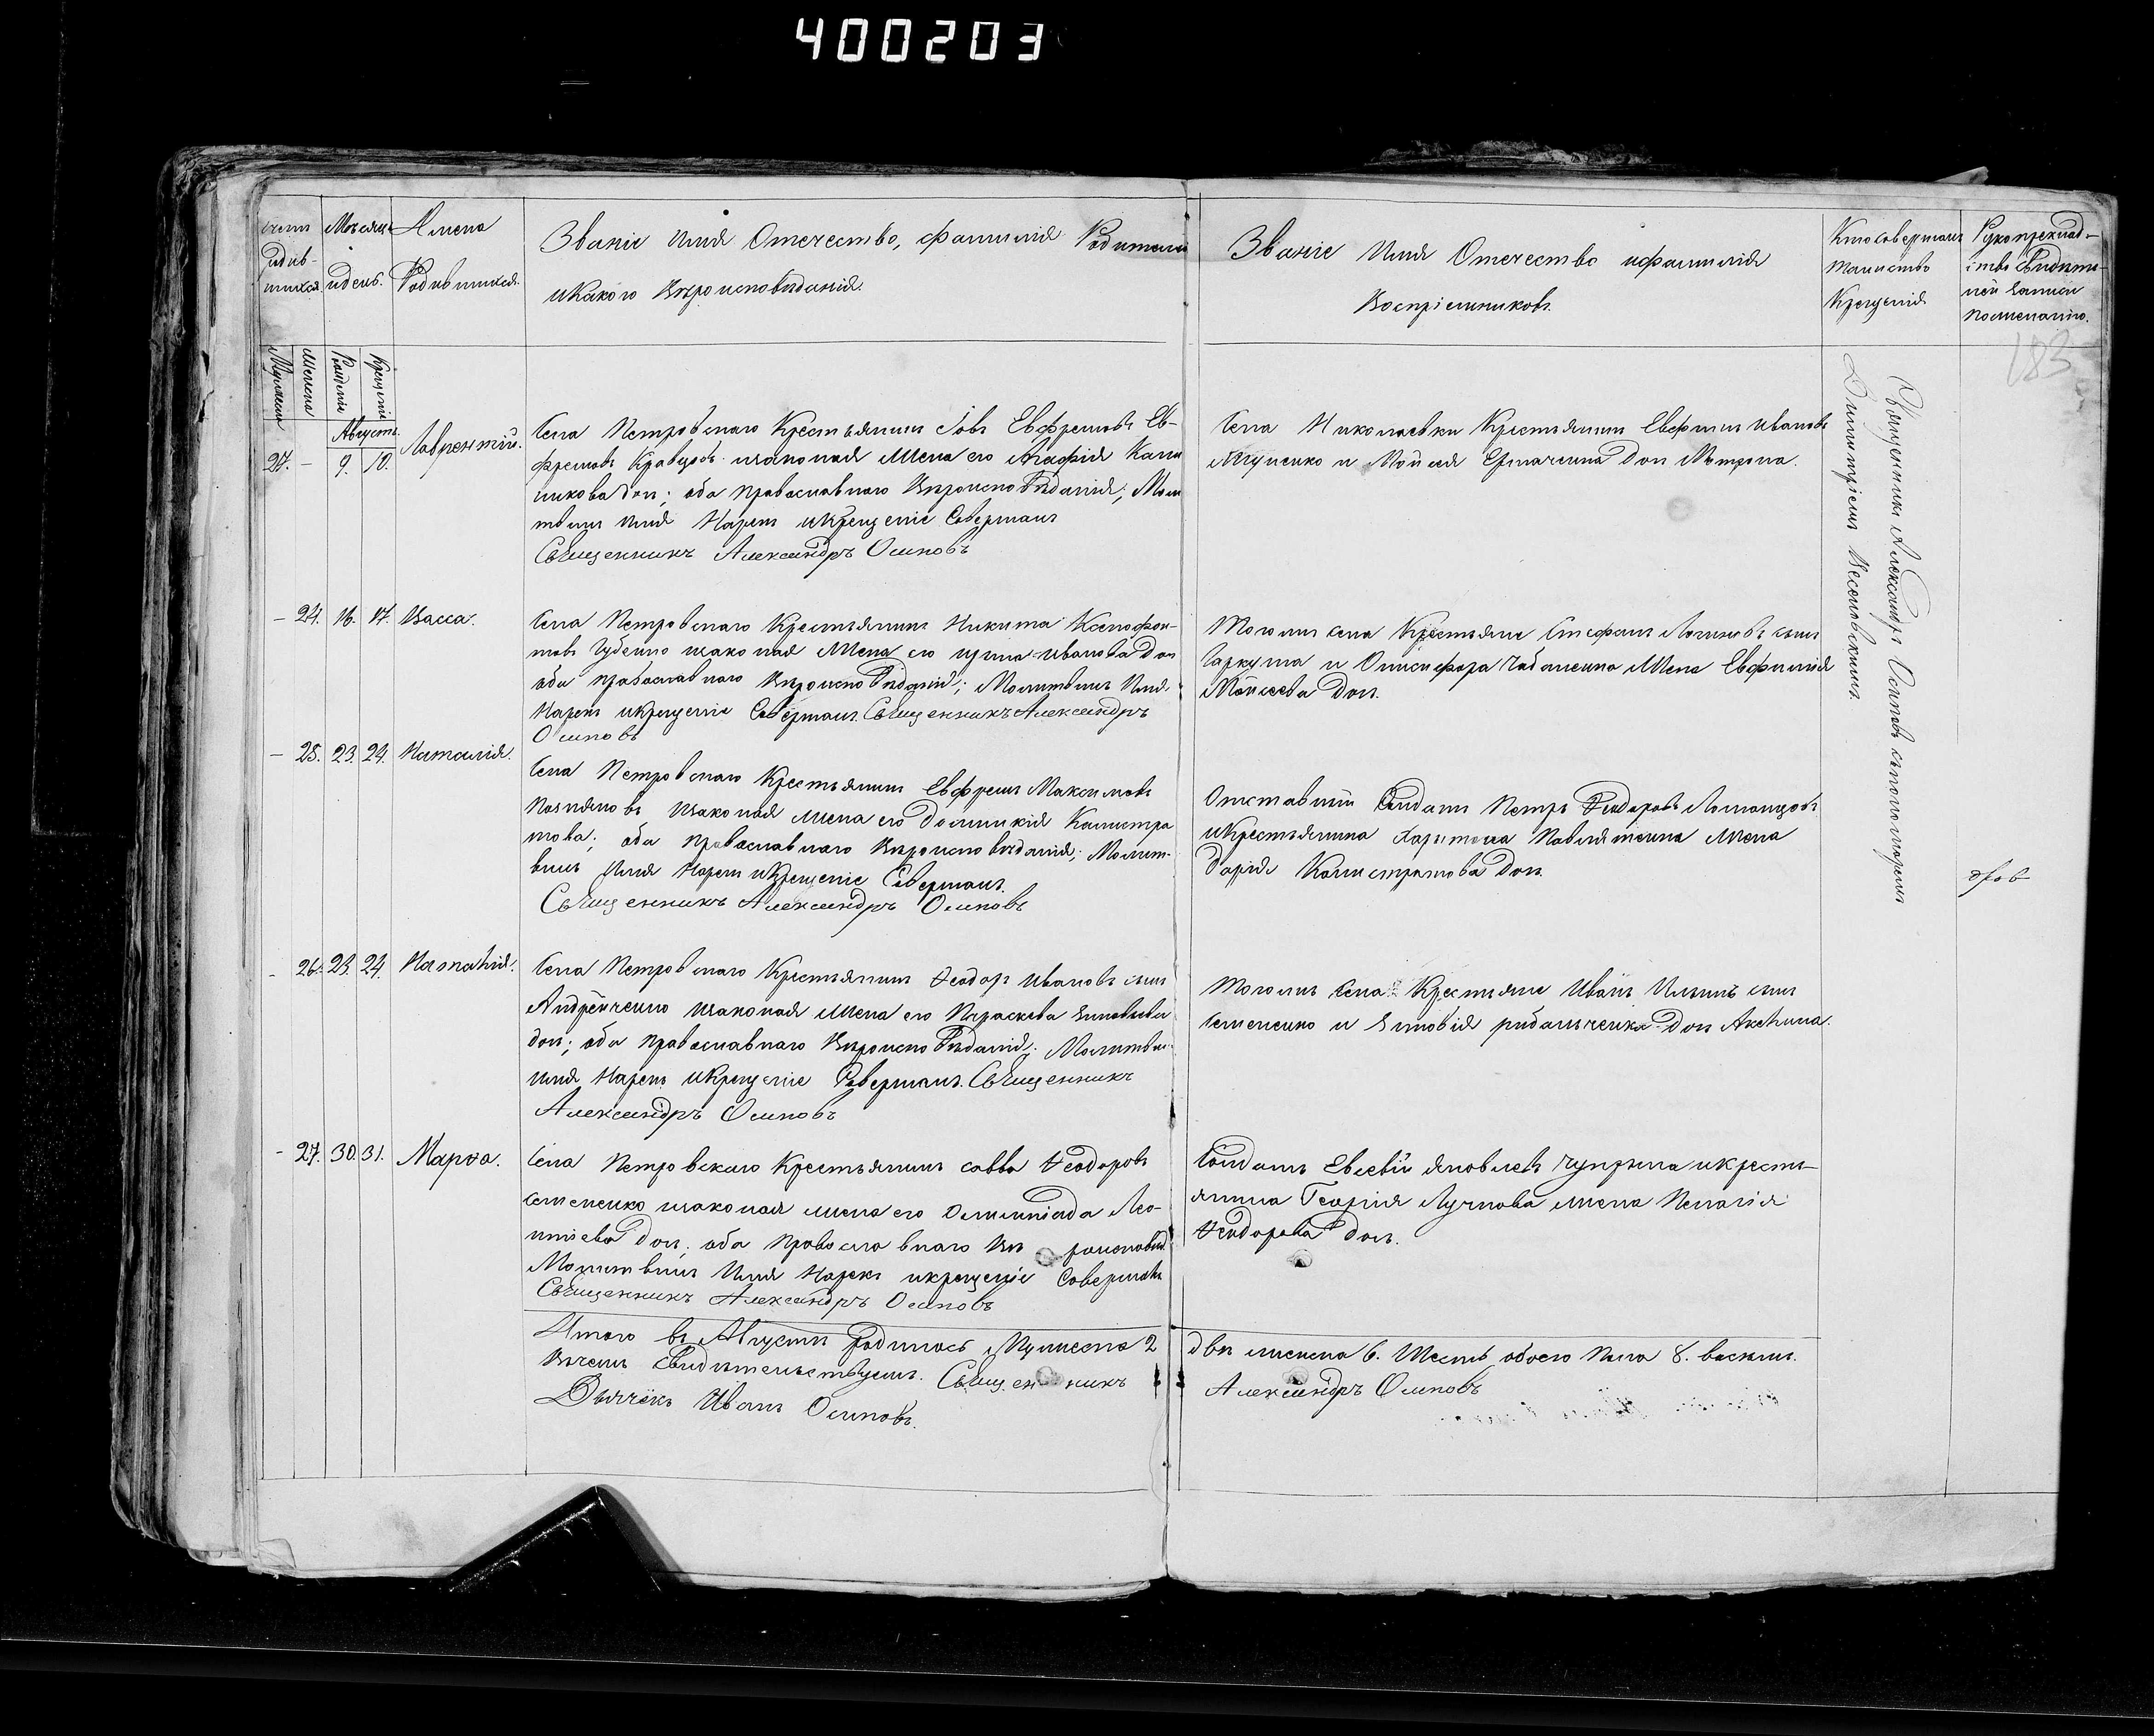 400203
Счетъ родив-шихся
Мѣсяцъ и день.
Имена Родившихся.
Званіе Имя Отечество, фамилія Родителей
и Какого Вѣроисповѣданія.
Званіе Имя Отечество и фамилія
Воспріемниковъ.
Кто совершалъ
таинство
Крещенія
Рукоприклад-
ство Свидѣте-
лей Записи
по желанію.
183
Мужеска
Женска
Рожденіе
Крещеніе
Августъ
27. – 9. 10. Лаврентій.
Села Петровскаго Крестьянинъ Іовъ Евфремовъ Ев-
фремовъ Кравцовъ изаконная Жена его Агафія Кали
никова доч; оба православнаго Вѣроисповѣданія; Моли
твши Имя Нарекъ и Крещеніе Совершалъ
Священникъ Александръ Осиповъ
Села Николаевки Крестьянинъ Евфимъ Ивановъ
и Мойсея Ермаченка доч Мотрона.
Священникъ Александръ Осиповъ съ пономаремъ
Димитріемъ
– 24. 16. 17. Васса.
Села Петровскаго Крестьянинъ Никита Ксенофон-
товъ Губенко изаконная Жена его ирина Иванова доч
оба православнаго Вѣроисповѣданія; Молитвилъ Имя
Нарекъ и крещеніе Совершалъ. Священникъ Александръ
Осиповъ
Тогожъ села Крестьяне Стефанъ Логиновъ сынъ
Гаркуша и Онисифора Чабаненка Жена Евфимія
Мойсеева доч.
– 25. 23. 24. Наталія.
Села Петровскаго Крестьянинъ Евфремъ Максимовъ
Позняковъ Изаконная жена его домникія Калистра
това; оба православнаго Вѣроисповѣданія; Молит-
вилъ Имя Нарекъ и Крещеніе Совершалъ.
Священникъ Александръ Осиповъ
Отставный Солдатъ Петръ Феодоровъ
и Крестьянина Харитона Павлятенка Жена
дарія Калистратова доч.
26. 23. 24. Наталія.
Села Петровскаго Крестьянинъ Ѳеодоръ Ивановъ сынъ
Андрейченко изаконная Жена его Параскева Зиновьева
доч; оба православнаго Вѣроисповѣданія; Молитвилъ
имя Нарекъ и Крещеніе Совершалъ. Священникъ
Александръ Осиповъ
Тогожъ Села Крестьяне Иванъ Ильинъ сынъ
Семененко и Зиновія рибальченка доч Аксѣнія.
– 27. 30. 31. Марѳа.
Села Петровскаго Крестьянинъ савва Ѳеодоровъ
семененко изаконная жена его Олимпіада Лео-
нтіева доч; оба православнаго Вѣроисповѣд.
Молитвилъ Имя Нарекъ и крещеніе Совершалъ
Священникъ Александръ Осиповъ
Солдатъ Евсевій яковлевъ Чуприна и крестъ-
янина Георгія Лучнова жена Пелагія
Ѳеодорова доч.
Итого въ Августѣ родилось Мужеска 2
два женска 6. Шесть обоего Пола 8. восемь.
Въчемъ Свидѣтельствуемъ. Священникъ
Александръ Осиповъ
Дьячекъ Иванъ Осиповъ.